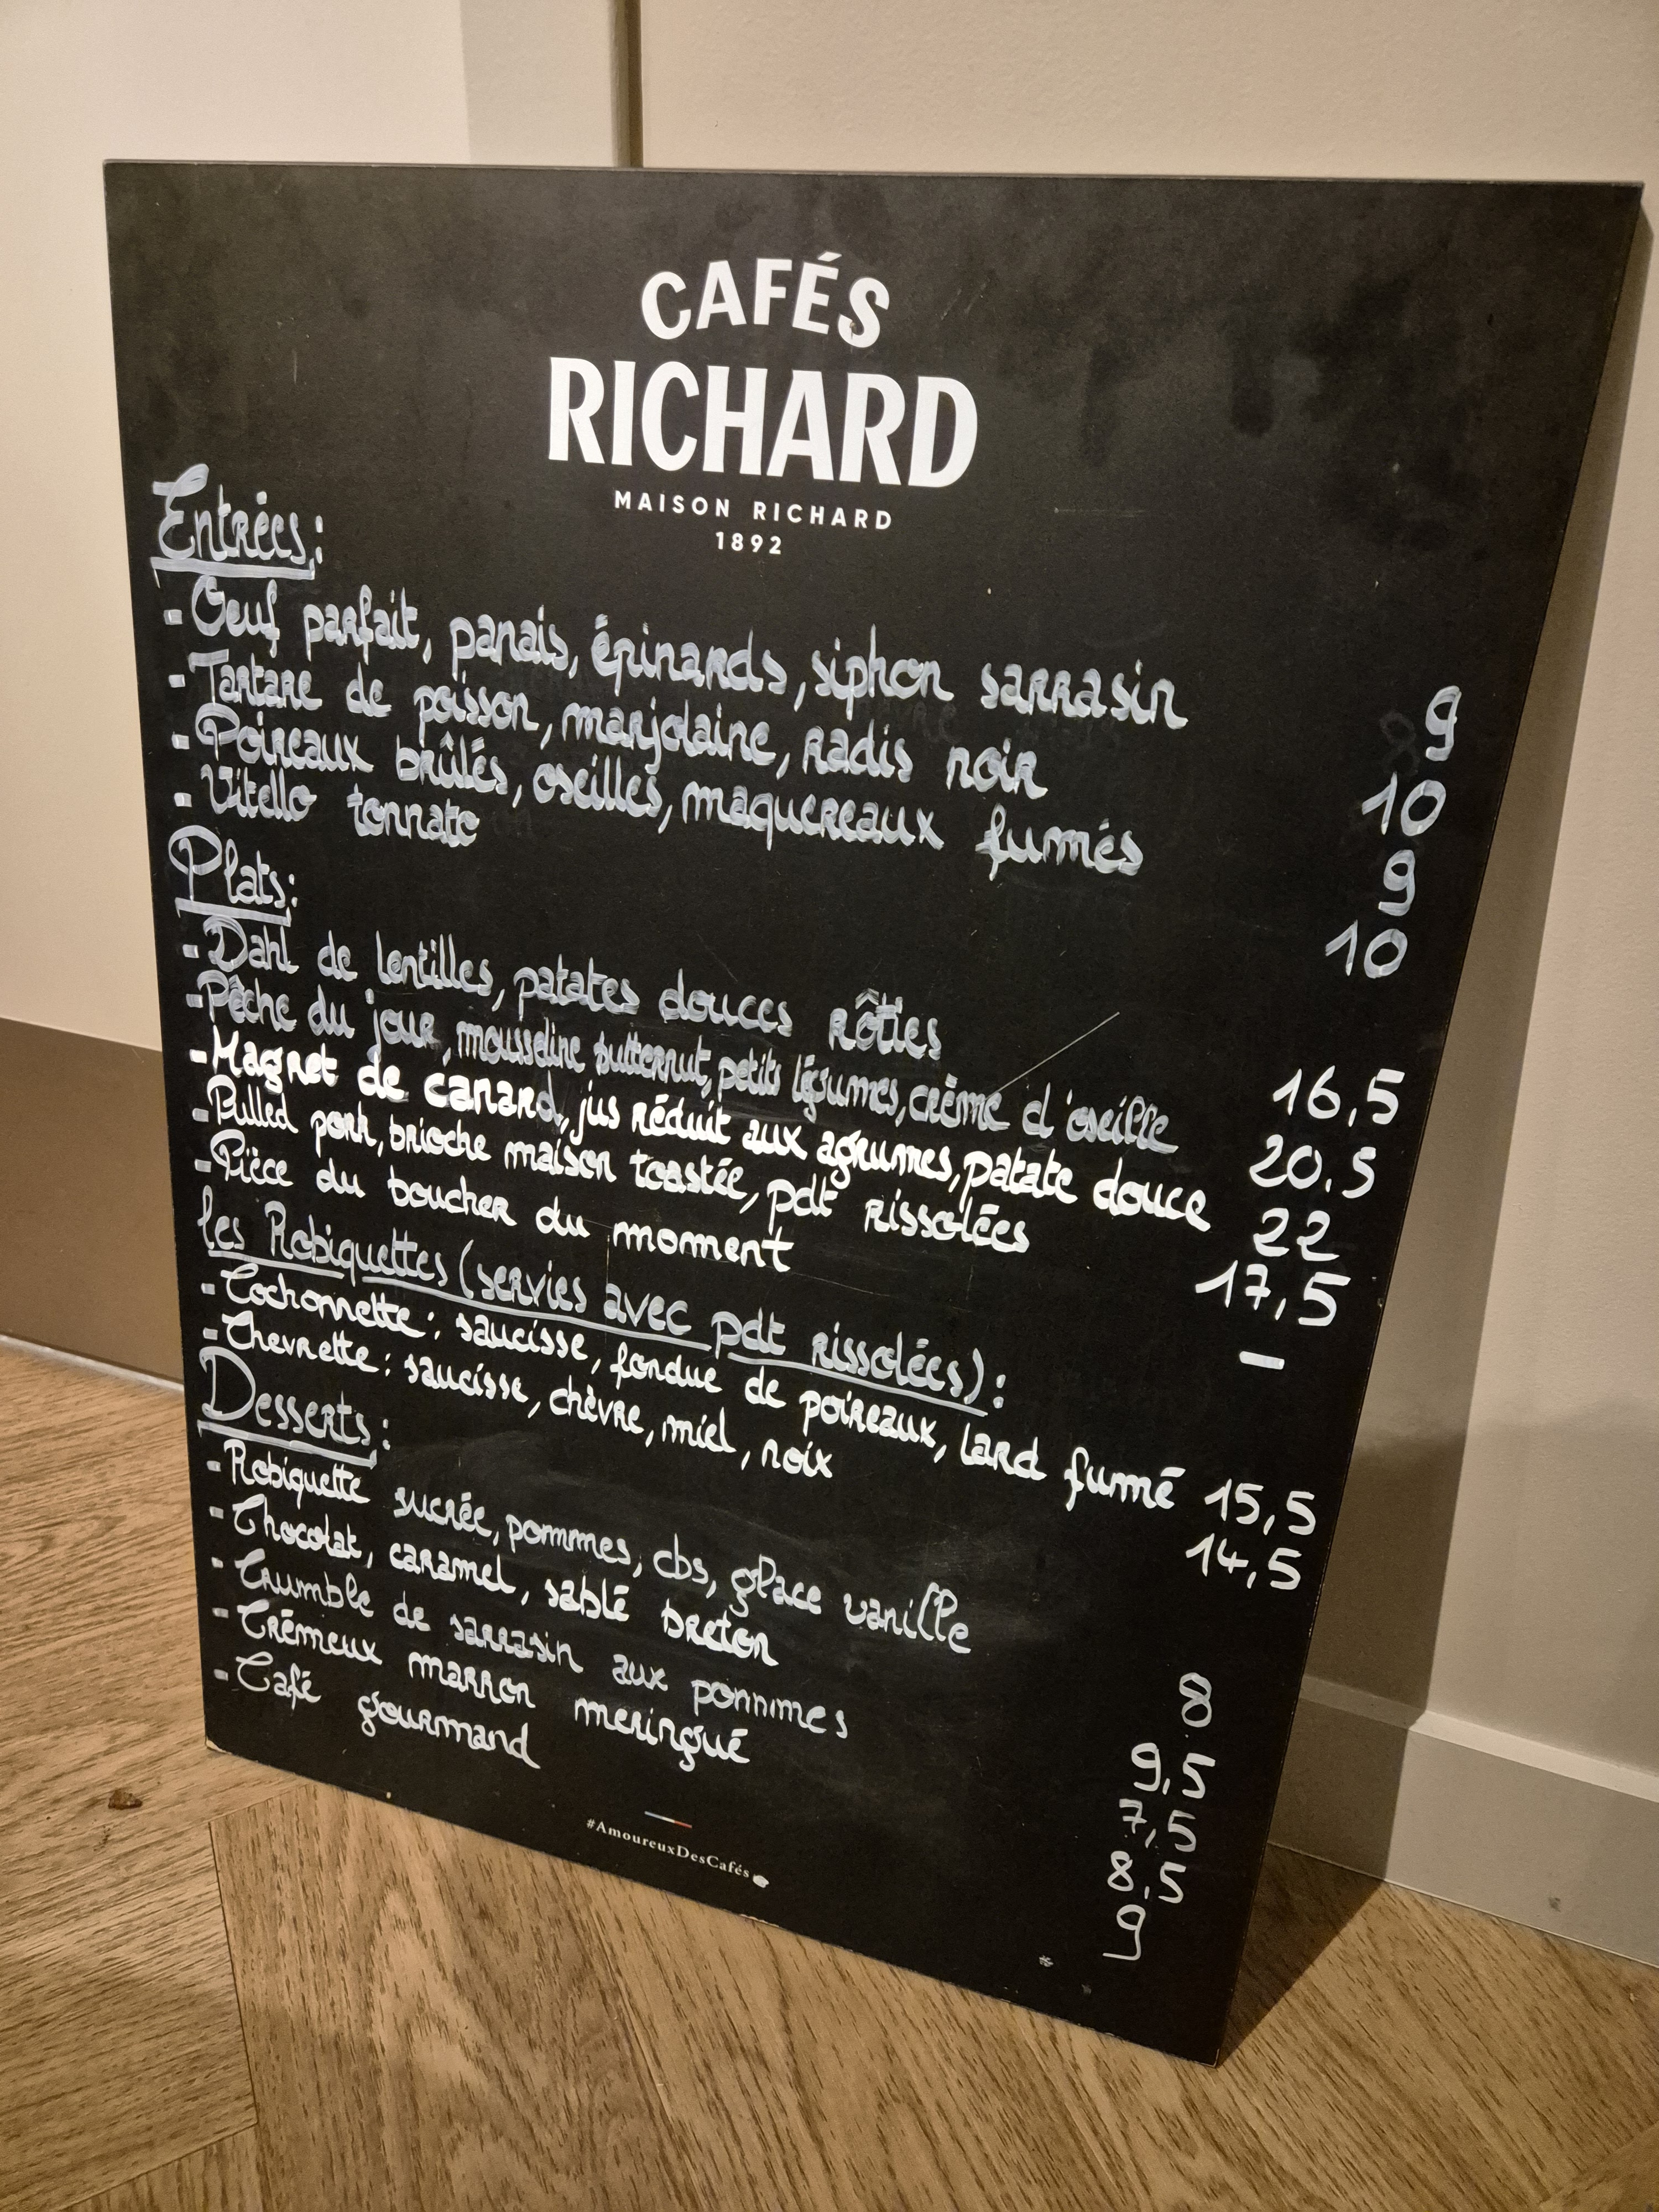 CAFÉS
RICHARD
MAISON RICHARD
1892
Entrées:
- Oeuf parfait, panais, épinards, siphon sarrasin 9
- Tartare de poisson, marjolaine, radis noir 10
- Poireaux brûlés, oseilles, maquereaux fumés 9
- Vitello tonnato 10
Plats:
- Dahl de lentilles, patates douces rôties 16,5
- Pêche du jour, mousseline butternut, petits légumes, crème d'oseille 20.5
- Magret de canard, jus réduit aux agrumes, patate douce 22
- Pulled pork, brioche maison toastée, pdt rissolées 17,5
- Pièce du boucher du moment -
les Robiquettes (servies avec pdt rissolées):
- Cochonnette: saucisse, fondue de poireaux, lard fumé 15,5
- Chevrette: saucisse, chèvre, miel, noix 14,5
Desserts:
- Robiquette sucrée, pommes, cbs, glace vanille 8
- Chocolat, caramel, sablé breton 9,5
- Crumble de sarrasin aux pommes 7,5
- Crémeux marron meringué 8,5
- Café gourmand 9
#AmoureuxDesCafés